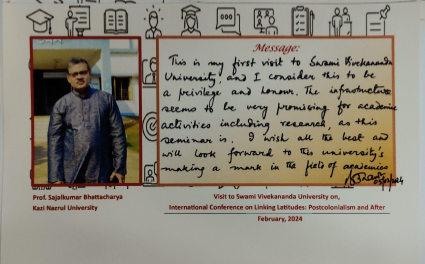 Message:
This is my first visit to Swami Vivekananda
University, and I consider this to be
a privilege and honour. The infrastructure
seems to be very promising for academic
activities including research, as this
seminar is. I wish all the best and
will look forward to this university's
making a mark in the field of academics
Prof. Sajalkumar Bhattacharya
Kazi Nazrul University
Visit to Swami Vivekananda University on,
International Conference on Linking Latitudes: Postcolonialism and After
February, 2024